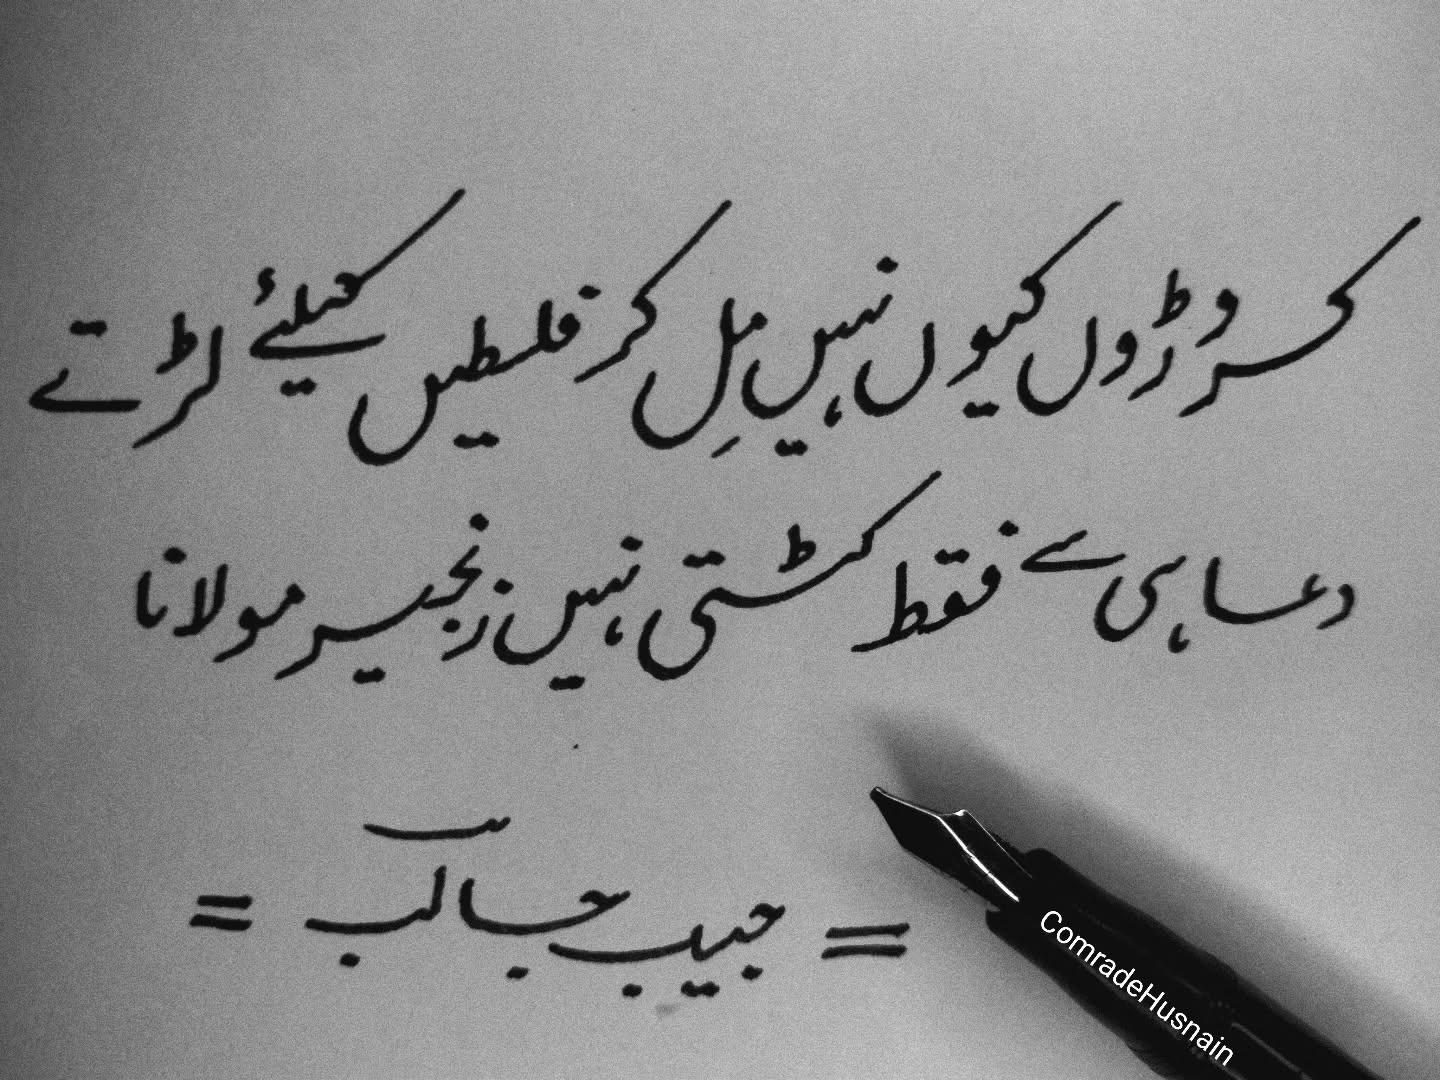 کروڑوں کیوں نہیں مِل کر فلسطیں کیلئے لڑتے
دعا ہی سے فقط کٹتی نہیں زنجیر مولانا
= حبیب جالب =
ComradeHusnain